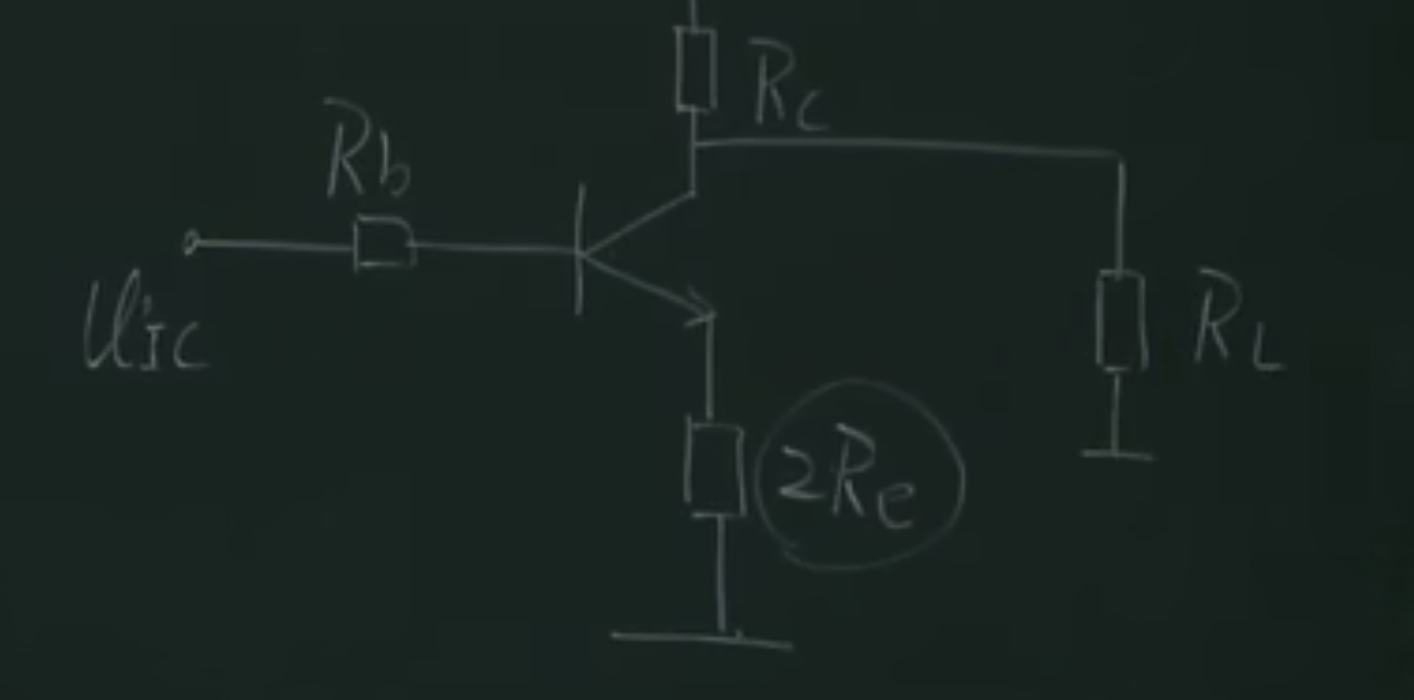 Rc
Rb
uIc
RL
2Re